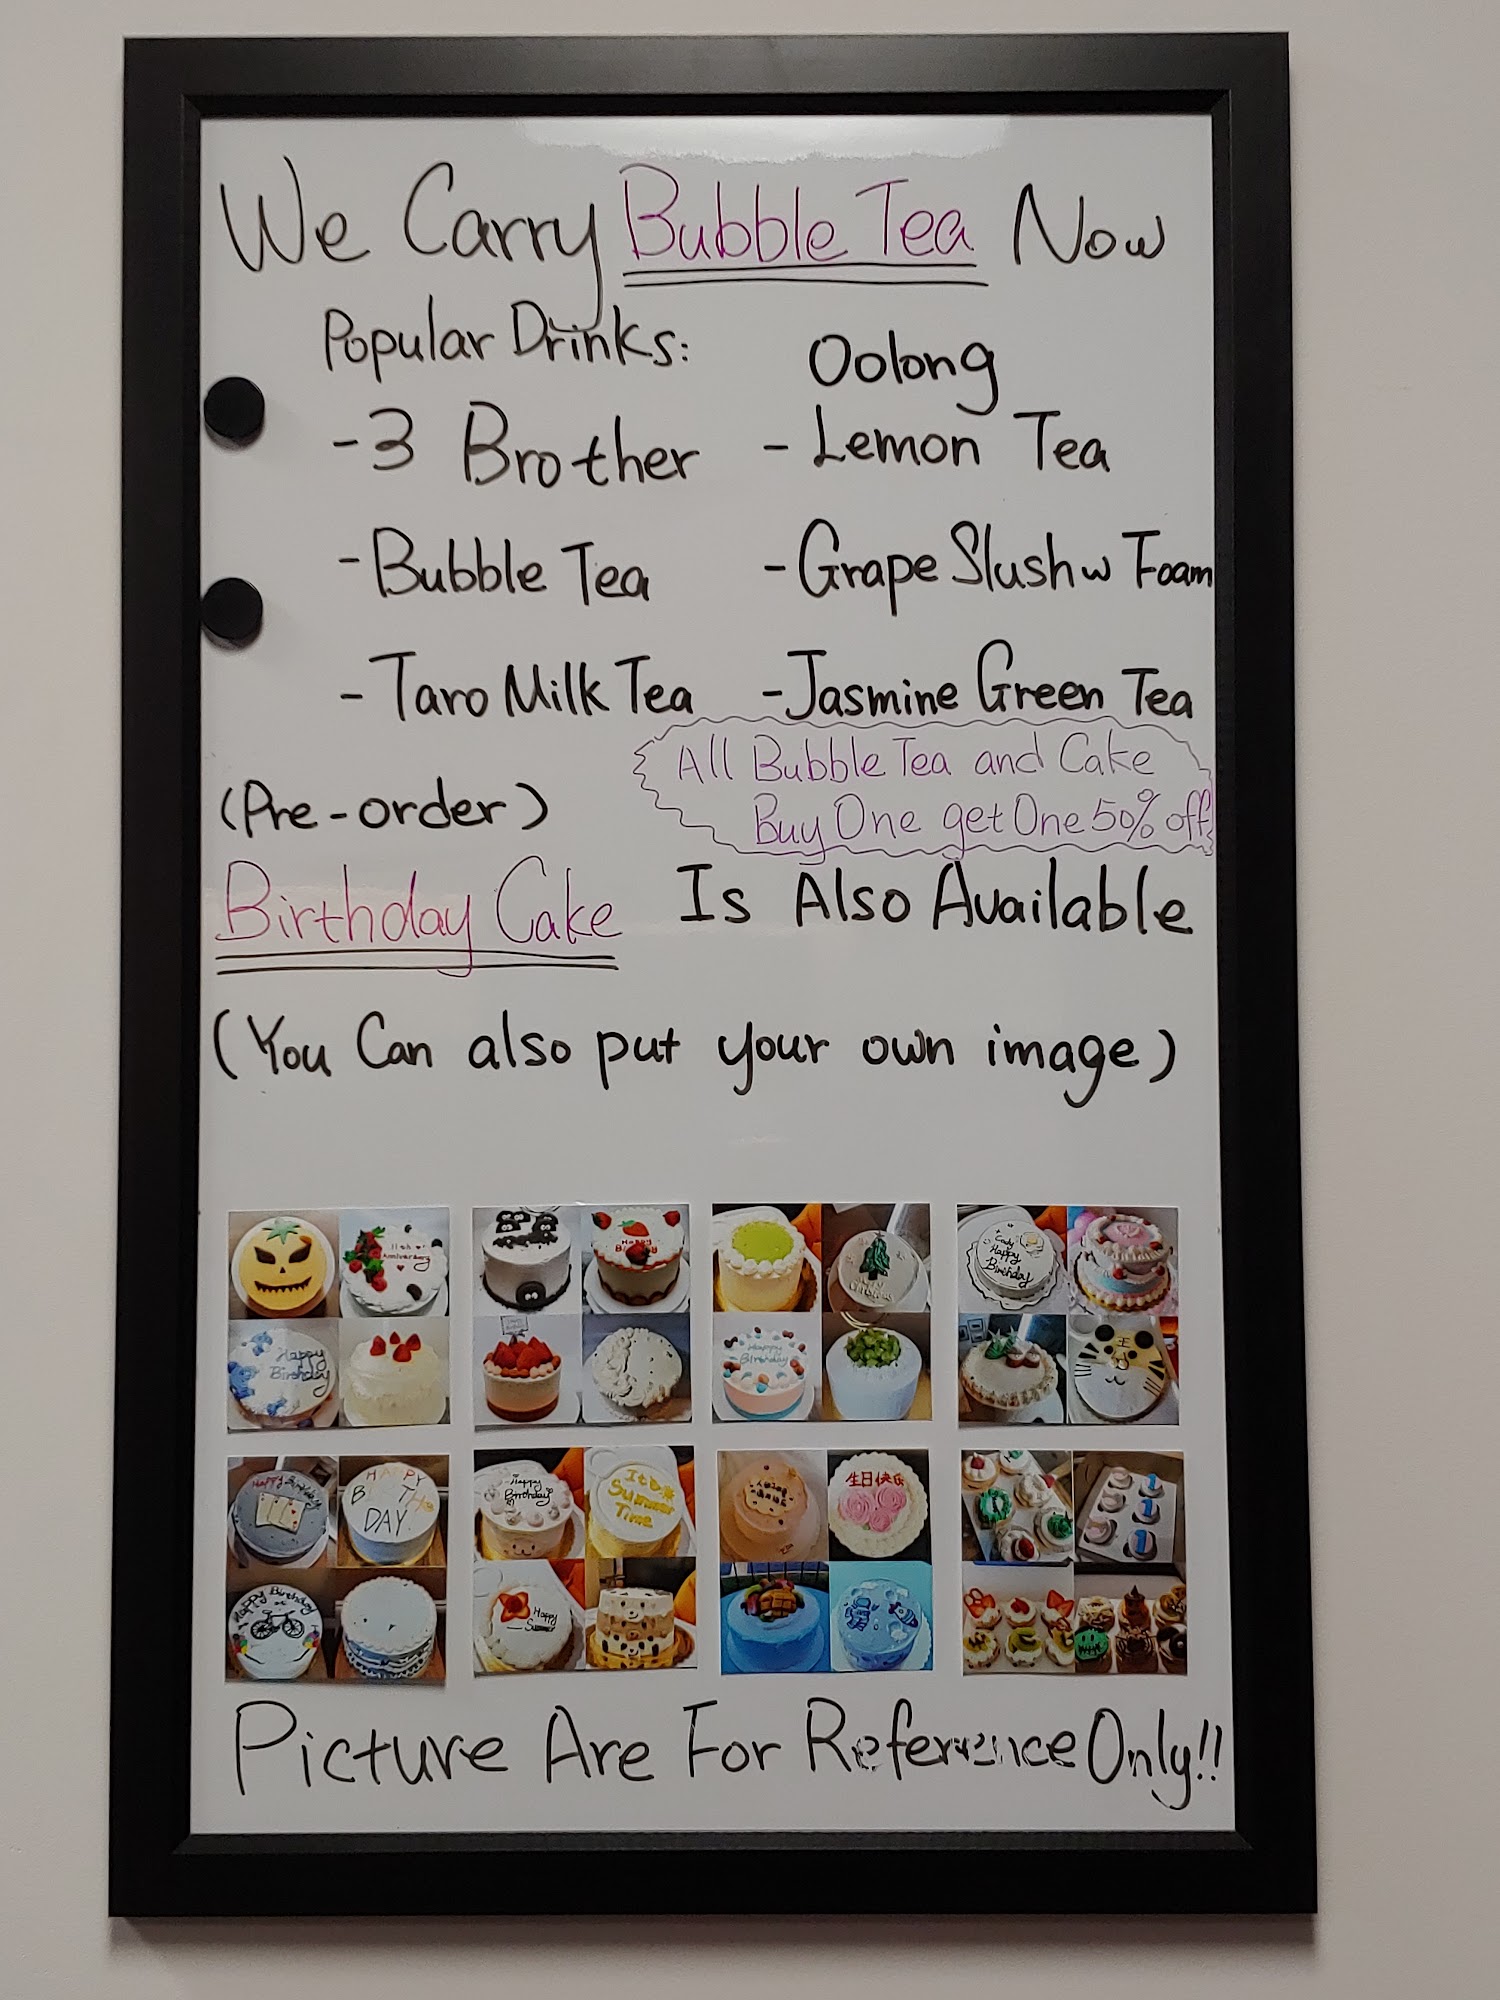 We Carry Bubble Tea Now
Popular Drinks:
- 3 Brother
- Bubble Tea
- Taro Milk Tea
Oolong
- Lemon Tea
- Grape Slush w Foam
- Jasmine Green Tea
All Bubble Tea and Cake
Buy One get One 50% off
(Pre-order)
Birthday Cake Is Also Available
(You Can also put your own image)
11th
Anniversary
Happy
Birthday
Happy
Birthday
Happy
Birthday
Happy
Birthday
王
Happy Birthday
HAPPY
DAY
Happy
Birthday
It's
Summer
Time
生日快乐
1
1
1
Happy Birthday
Happy
Summer
Picture Are For Reference Only!!